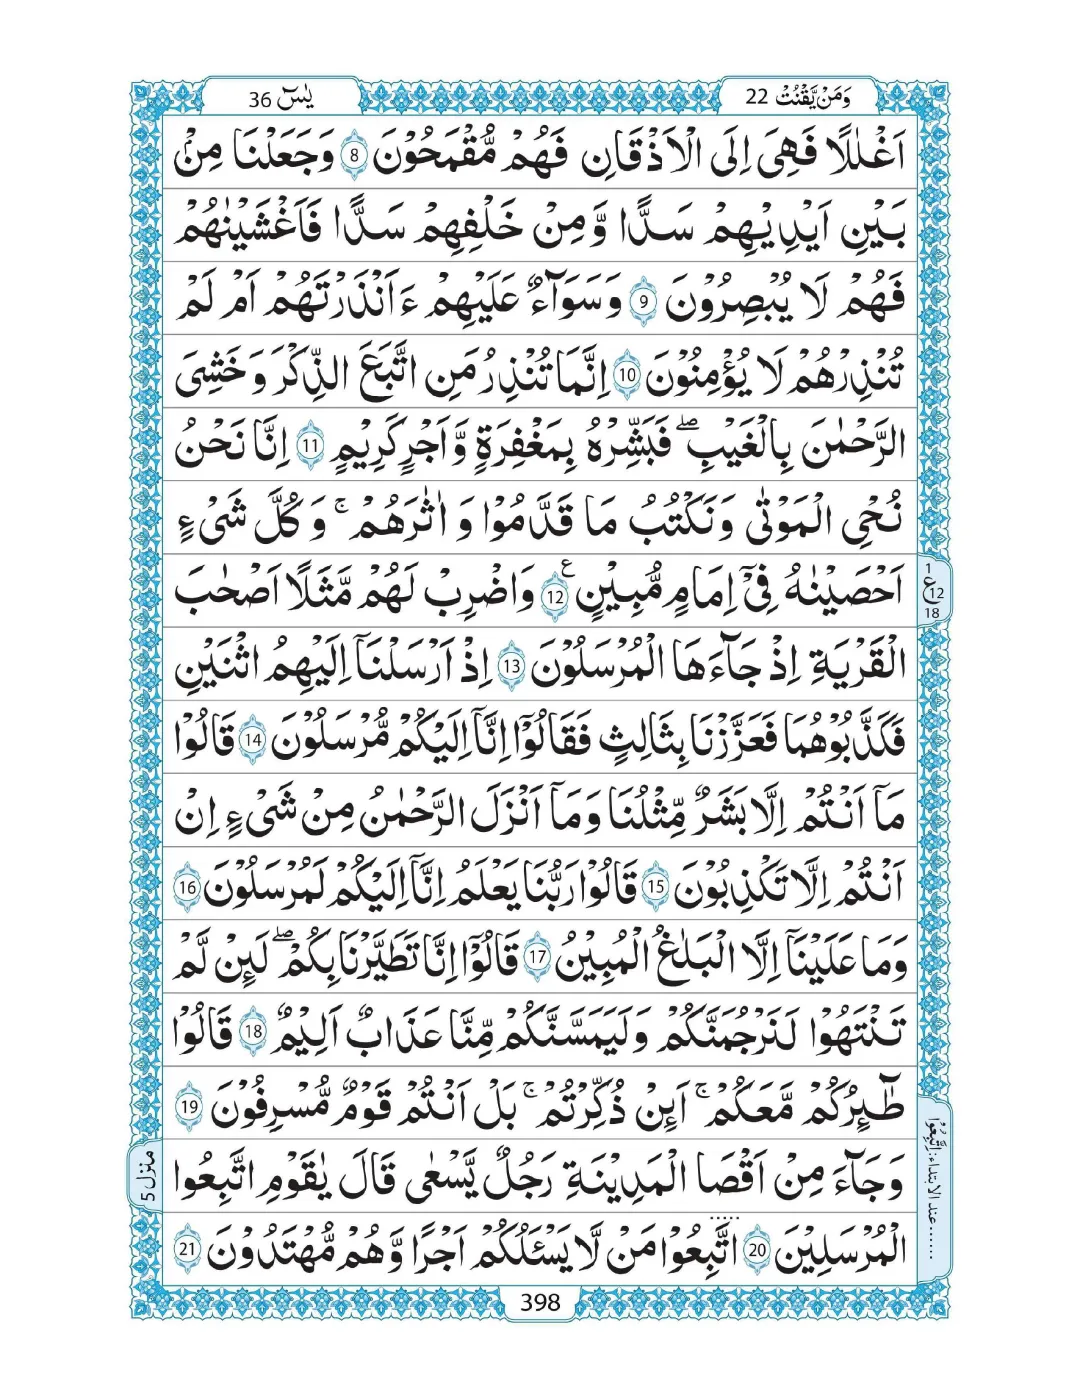 وَمَنْ يَّقْنُتْ 22
يٰسٓ 36
اَغْلٰلًا فَهِىَ اِلَى الْاَذْقَانِ فَهُمْ مُّقْمَحُوْنَ 8 وَجَعَلْنَا مِنْۢ
بَيْنِ اَيْدِيْهِمْ سَدًّا وَّمِنْ خَلْفِهِمْ سَدًّا فَاَغْشَيْنٰهُمْ
فَهُمْ لَا يُبْصِرُوْنَ 9 وَسَوَآءٌ عَلَيْهِمْ ءَاَنْذَرْتَهُمْ اَمْ لَمْ
تُنْذِرْهُمْ لَا يُؤْمِنُوْنَ 10 اِنَّمَا تُنْذِرُ مَنِ اتَّبَعَ الذِّكْرَ وَخَشِىَ
الرَّحْمٰنَ بِالْغَيْبِ ۖ فَبَشِّرْهُ بِمَغْفِرَةٍ وَّاَجْرٍ كَرِيْمٍ 11 اِنَّا نَحْنُ
نُحْىِ الْمَوْتٰى وَنَكْتُبُ مَا قَدَّمُوْا وَاٰثَارَهُمْ ۚ وَكُلَّ شَىْءٍ
اَحْصَيْنٰهُ فِىْٓ اِمَامٍ مُّبِيْنٍ ع 12 وَاضْرِبْ لَهُمْ مَّثَلًا اَصْحٰبَ
1
ع 12
18
الْقَرْيَةِ اِذْ جَآءَهَا الْمُرْسَلُوْنَ 13 اِذْ اَرْسَلْنَآ اِلَيْهِمُ اثْنَيْنِ
فَكَذَّبُوْهُمَا فَعَزَّزْنَا بِثَالِثٍ فَقَالُوْٓا اِنَّآ اِلَيْكُمْ مُّرْسَلُوْنَ 14 قَالُوْا
مَآ اَنْتُمْ اِلَّا بَشَرٌ مِّثْلُنَا وَمَآ اَنْزَلَ الرَّحْمٰنُ مِنْ شَىْءٍ اِنْ
اَنْتُمْ اِلَّا تَكْذِبُوْنَ 15 قَالُوْا رَبُّنَا يَعْلَمُ اِنَّآ اِلَيْكُمْ لَمُرْسَلُوْنَ 16
وَمَا عَلَيْنَآ اِلَّا الْبَلٰغُ الْمُبِيْنُ 17 قَالُوْٓا اِنَّا تَطَيَّرْنَا بِكُمْ ۖ لَئِنْ لَّمْ
تَنْتَهُوْا لَنَرْجُمَنَّكُمْ وَلَيَمَسَّنَّكُمْ مِّنَّا عَذَابٌ اَلِيْمٌ 18 قَالُوْا
طَآئِرُكُمْ مَّعَكُمْ ۚ اَئِنْ ذُكِّرْتُمْ ۚ بَلْ اَنْتُمْ قَوْمٌ مُّسْرِفُوْنَ 19
وَجَآءَ مِنْ اَقْصَا الْمَدِيْنَةِ رَجُلٌ يَّسْعٰى قَالَ يٰقَوْمِ اتَّبِعُوا
الْمُرْسَلِيْنَ 20 اتَّبِعُوْا مَنْ لَّا يَسْئَلُكُمْ اَجْرًا وَّهُمْ مُّهْتَدُوْنَ 21
عند الابتداء: اِتَّبِعُوْا
منزل 5
398